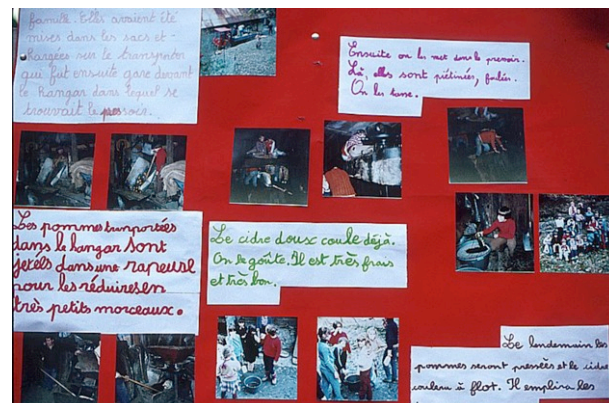 famille. Elles avaient été
mises dans les sacs et
chargées sur le transporter
qui fut ensuite garé devant
le hangar dans lequel se
trouvait le pressoir.
Ensuite on les met dans le pressoir.
Là, elles sont piétinées, foulées.
On les tasse.
Les pommes transportées
dans le hangar sont
jetées dans une rapeuse
pour les réduire en
très petits morceaux.
Le cidre doux coule déjà.
On le goûte. Il est très frais
et très bon.
Le lendemain les
pommes seront pressées et le cidre
coulera à flot. Il emplira les